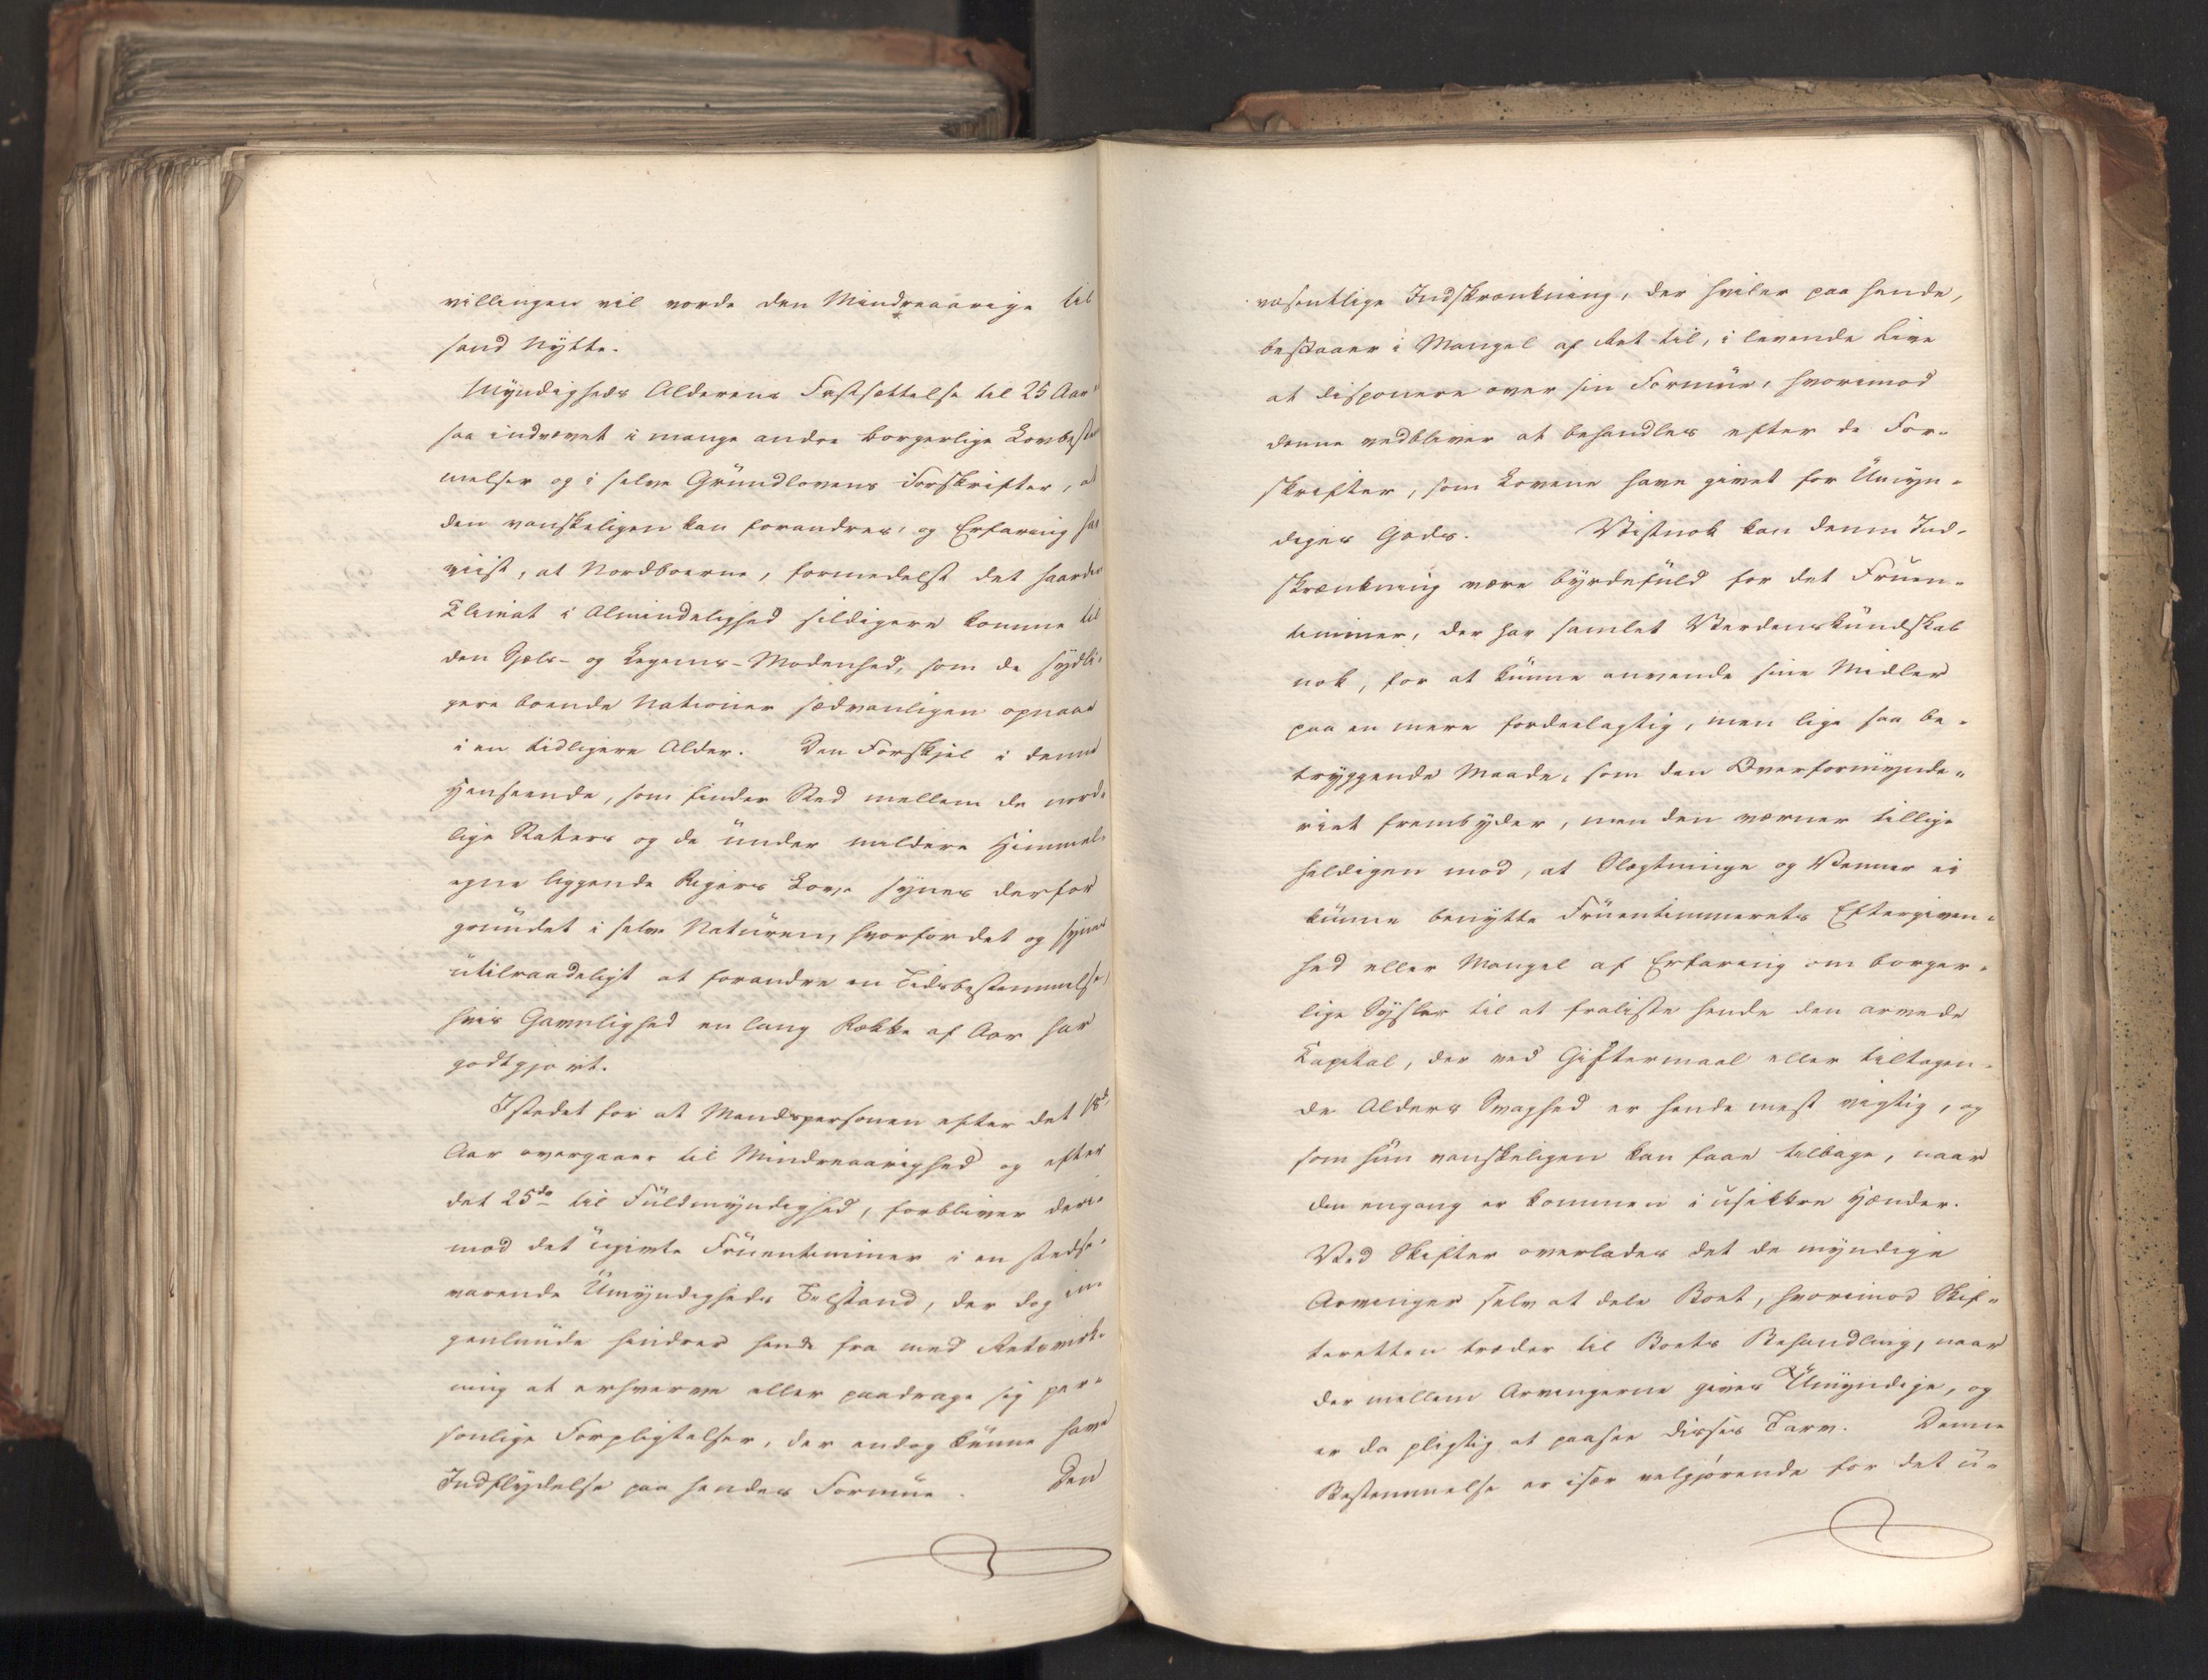 villingen vil vorde den Mindreaarige til
sand Nytte.
Myndigheds Alderens Fastsættelse til 25 Aar er
saa indvævet i mange andre borgerlige Lovbestem
melser og i selve Grundlovens Forskrifter, at
den vanskeligen kan forandres, og Erfaring har
viist, at Nordboerne, formedelst det haarde
Climat i Almindelighed sildigere komme til
den Sjels- og Legems-Modenhed, som de sydli-
gere boende Nationer sædvanligen opnaae
i en tidligere Alder. Den Forskjel i denne
Henseende, som finder Sted mellem de nord-
lige Staters og de under mildere Himmel-
egne liggende Rigers Love synes derfor
grundet i selve Naturen, hvorfor det og synes
utilraadeligt at forandre en Tidsbestemmelse,
hvis Gavnlighed en lang Række af Aar har
godtgjort.
Istedet for at Mandspersonen efter det 18de
Aar overgaaer til Mindreaarighed og efter
det 25de til Fuldmyndighed, forbliver deri-
mod det ugivte Fruentimmer i en stedse-
varende Umyndigheds Tilstand, der dog in
genlunde hindrer hende fra med Retsvirk-
ning at erhverve eller paadrage sig per-
sonlige Forpligtelser, der endog kunne have
Indflydelse paa hendes Formue. Den
væsentlige Indskrænkning, der hviler paa hende,
bestaaer i Mangel af Ret til, i levende Live
at disponere over sin Formue, hvorimod
denne vedbliver at behandles efter de For-
skrifter, som Lovene have givet for Umyn-
diges Gods. Vistnok kan denne Ind-
skrænkning være byrdefuld for det Fruen-
timmer, der har samlet Verdenskundskab
nok, for at kunne anvende sine Midler
paa en mere fordeelagtig, men lige saa be-
tryggende Maade, som den Overformynde-
riet frembyder, men den værner tillige
heldigen mod, at Slægtninge og Venner ei
kunne benytte Fruentimmerets Eftergiven-
hed eller Mangel af Erfaring om borger-
lige Sysler til at fraliste hende den arvede
Capital, der ved Giftermaal eller tiltagen-
de Alders Svaghed er hende mest vigtig, og
som hun vanskeligen kan faae tilbage, naar
den engang er kommen i usikkre Hænder.
Ved Skifter overlades det de myndige
Arvinger selv at dele Boet, hvorimod Skif-
teretten træder til Boets Behandling, naar
der mellem Arvingerne gives Umyndige, og
er da pligtig at paasee disses Tarv. Denne
Bestemmelse er især velgjørende for det u-